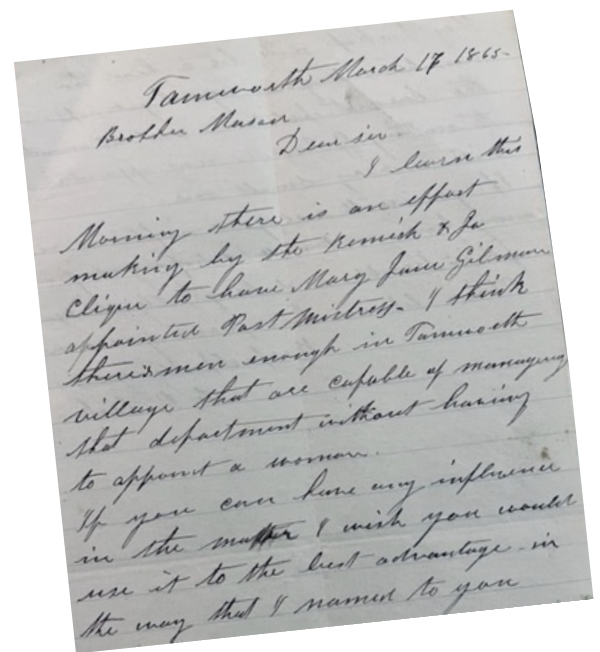 Tamworth March 17 1865-
Brother Mason
Dear sir
I learn this
Morning there is an effort
making by the Remick & Jo
Clique to have Mary Jane Gilman
appointed Post Mistress- I think
there is men enough in Tamworth
village that are capable of managing
that department without having
to appoint a woman.
If you can have any influence
in the matter I wish you would
use it to the best advantage in
the way that I named to you